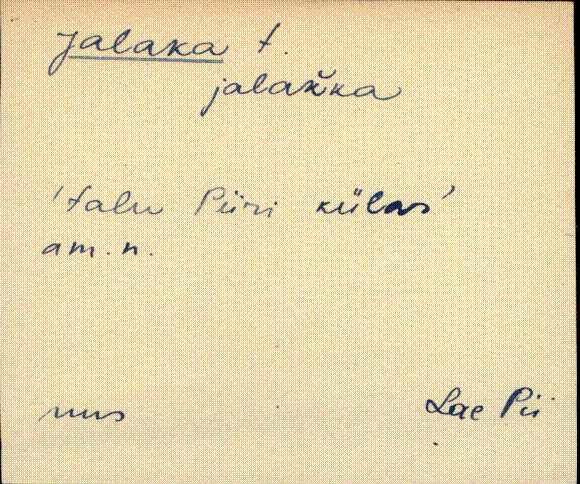 Jalaka t.
jalak̆ka
'talu Piiri külas'
am. n.
mus
Lae Pii